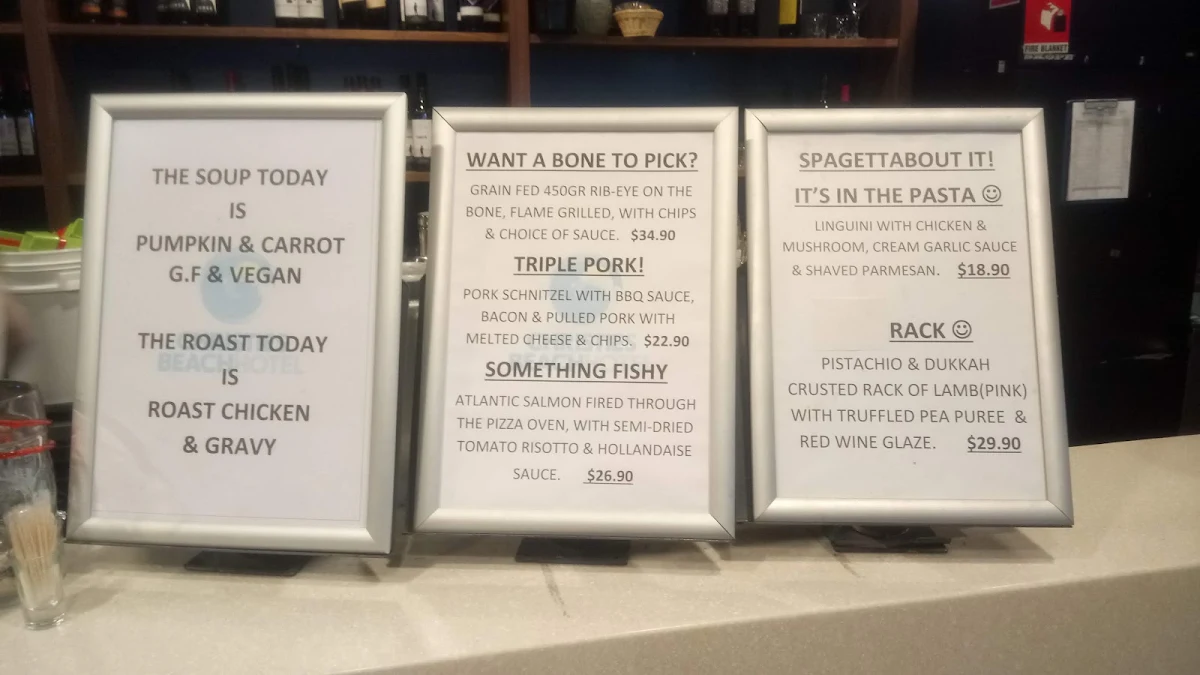 THE SOUP TODAY
IS
PUMPKIN & CARROT
G.F & VEGAN
THE ROAST TODAY
IS
ROAST CHICKEN
& GRAVY
BEACHHOTEL
WANT A BONE TO PICK?
GRAIN FED 450GR RIB-EYE ON THE
BONE, FLAME GRILLED, WITH CHIPS
& CHOICE OF SAUCE. $34.90
TRIPLE PORK!
PORK SCHNITZEL WITH BBQ SAUCE,
BACON & PULLED PORK WITH
MELTED CHEESE & CHIPS. $22.90
SOMETHING FISHY
ATLANTIC SALMON FIRED THROUGH
THE PIZZA OVEN, WITH SEMI-DRIED
TOMATO RISOTTO & HOLLANDAISE
SAUCE. $26.90
SPAGETTABOUT IT!
IT'S IN THE PASTA ☺
LINGUINI WITH CHICKEN &
MUSHROOM, CREAM GARLIC SAUCE
& SHAVED PARMESAN. $18.90
RACK ☺
PISTACHIO & DUKKAH
CRUSTED RACK OF LAMB(PINK)
WITH TRUFFLED PEA PUREE &
RED WINE GLAZE. $29.90
FIRE BLANKET